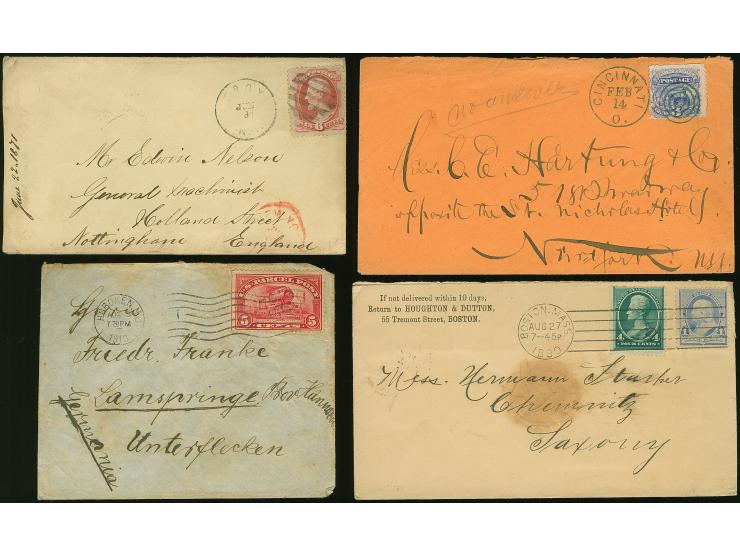 June 22 1871
Mr Edwin Nelson
General Machinist
Holland Street
Nottingham England
SIX CENTS
no answer
CINCINNATI
FEB
14
O.
POSTAGE
C. E. Hartung & Co.
Broadway
opposite the St. Nicholas Hotel
New York
HOBOKEN, N.J.
7 30 PM
1913
U.S. PARCEL POST
5 CENTS 5
Herrn
Friedr. Franke
Lamspringe, Prov. Hannover
Unterflecken
Germania
If not delivered within 10 days,
Return to HOUGHTON & DUTTON,
55 Tremont Street, BOSTON.
BOSTON, MASS.
AUG 27
7-45P
4 FOUR CENTS 4
Mess. Hermann
Chemnitz
Saxony